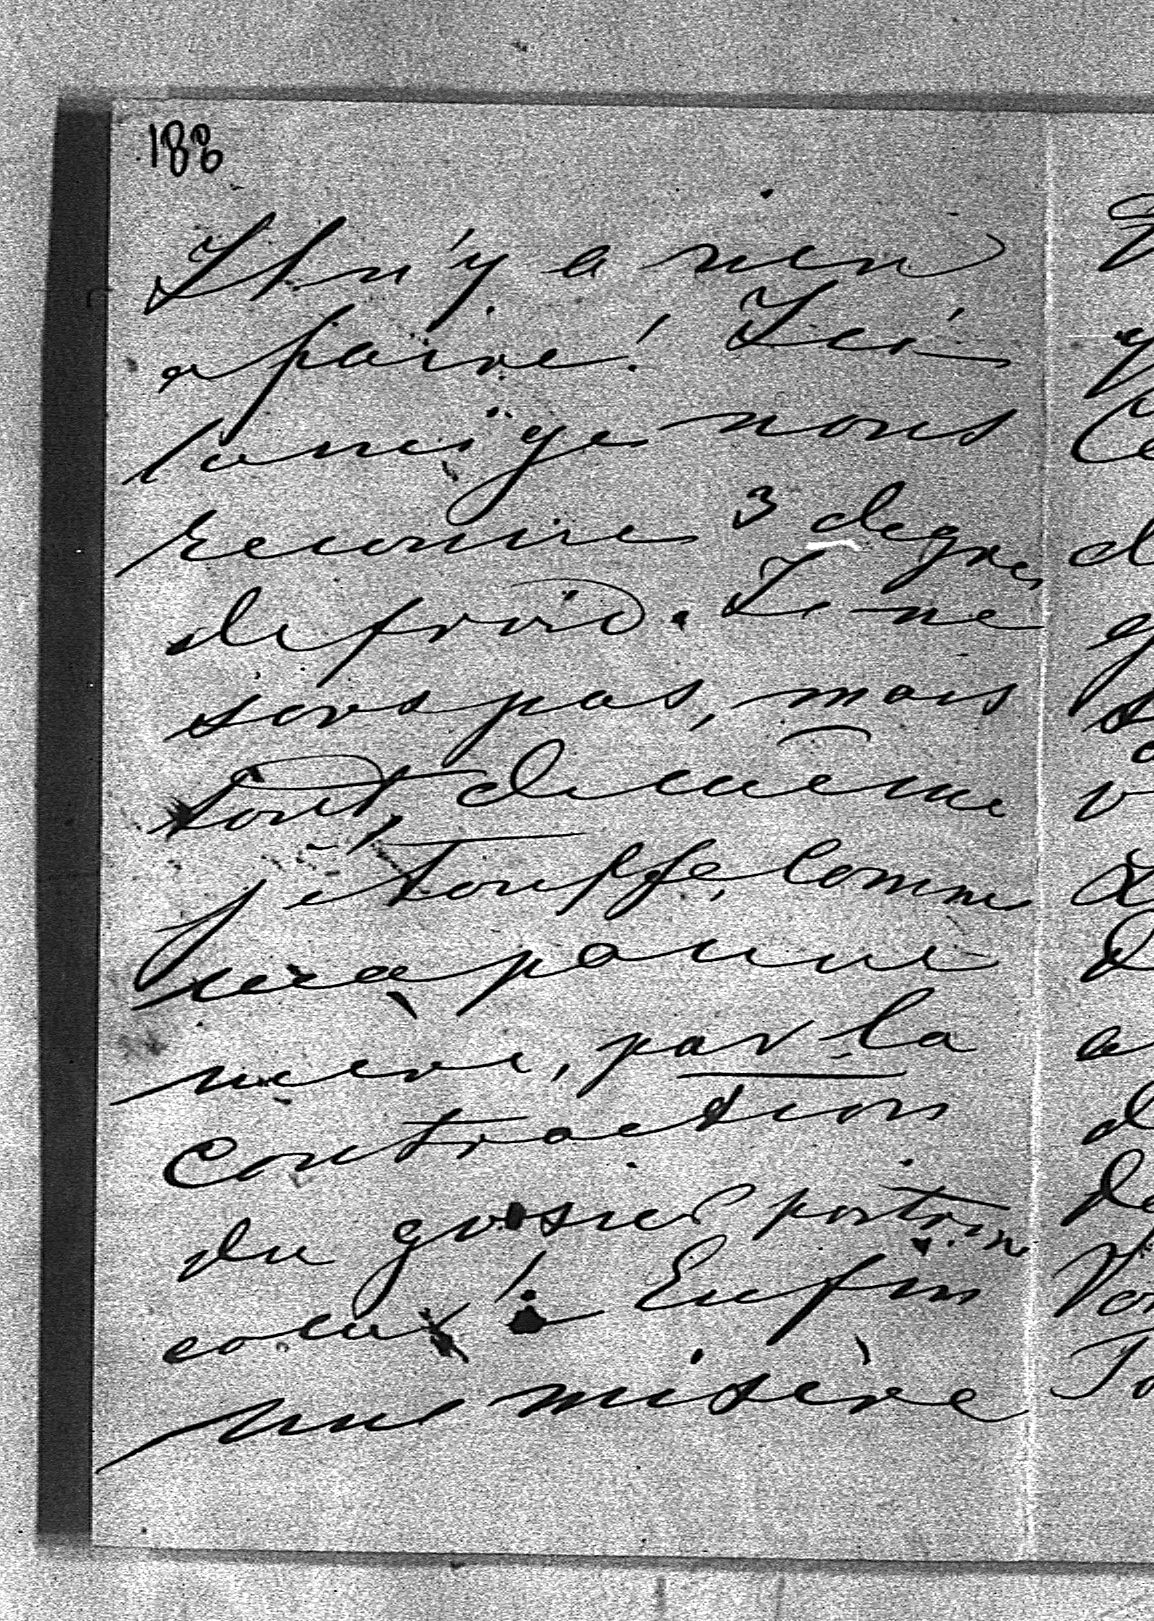 188
Il n'y a rien
a faire! Ici
la neige nous
recouvre 3 degres
de froid. Je ne
sors pas, mais
tout de même
j'étouffe, comme
ma pauvre
mère, par la
contraction
du gosier poitrine
! Enfin
une misère